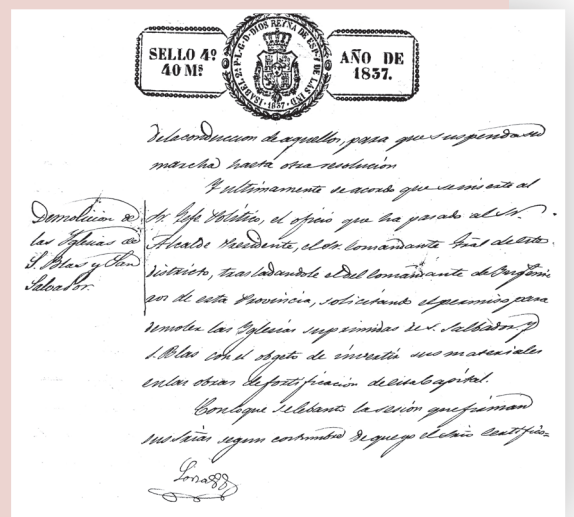 SELLO 4º
40 Mˢ
ISABEL 2ª P. L. G. D. DIOS REYNA DE ESP. Y DE LAS IND.
1837
AÑO DE
1837.
de la conduccion de aquellos, para que suspenda su
marcha hasta otra resolución
Y ultimamente se acordo que se inserte al
Sr. Gefe Politico, el oficio que ha pasado al Sr.
Alcalde Presidente, el Sr. Comandante Gral de este
districto, trasladandole el del Comandante de Yngenie
ros de esta Provincia, solicitando el permiso para
demoler las Yglesias suprimidas de S. Salbador y
S. Blas con el objeto de invertir sus materiales
en las obras de fortificacion de esta Capital.
Con lo que se lebantó la sesión que firman
sus Srias segun costumbre de que yo el Srio certifico=
Demolicion de
las Yglesias de
S. Blas y San
Salvador.